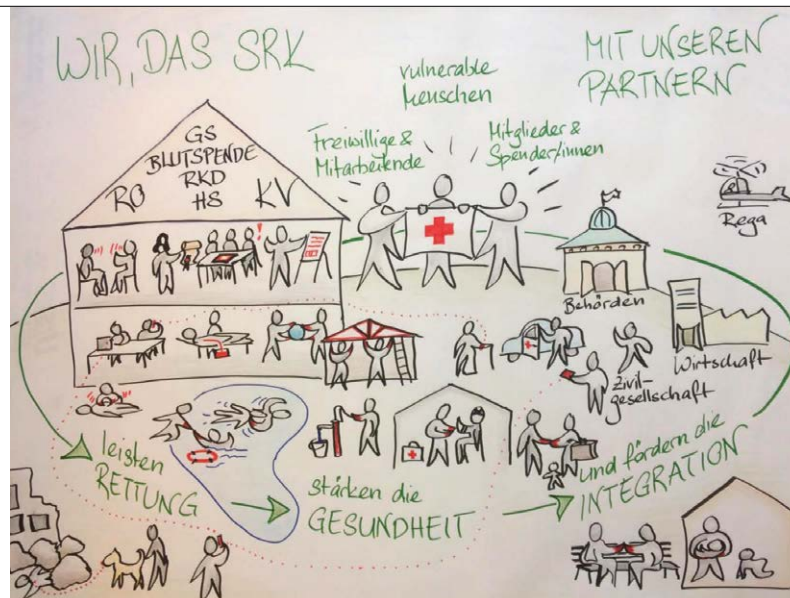 WIR, DAS SRK
vulnerable
Menschen
MIT UNSEREN
PARTNERN
Freiwillige &
Mitarbeitende
Mitglieder &
Spender/innen
GS
BLUTSPENDE
RKD
RO HS KV
!
Rega
Behörden
Wirtschaft
Zivil-
gesellschaft
leisten
RETTUNG
stärken die
GESUNDHEIT
und fördern die
INTEGRATION